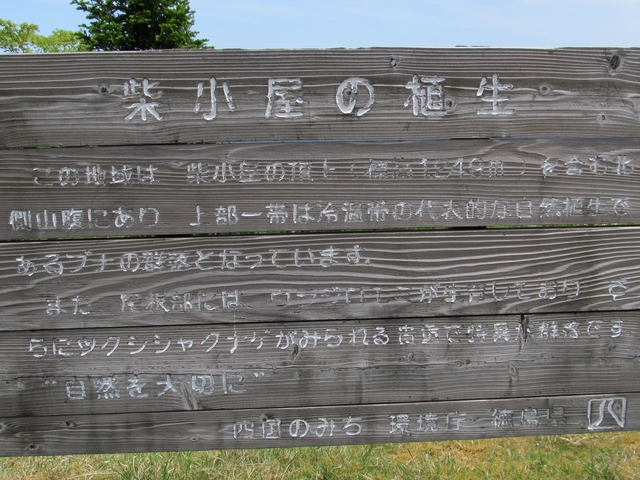 柴小屋の植生
この地域は 柴小屋の頂上 標高1249m を含む北
側山腹にあり 上部一帯は冷温帯の代表的な自然植生で
あるブナの群落となっています。
また 尾根部には ウラジロモミが浸出しており さ
らにツクシシャクナゲがみられる貴重で特異な群落です
"自然を大切に"
四国のみち 環境庁 徳島県